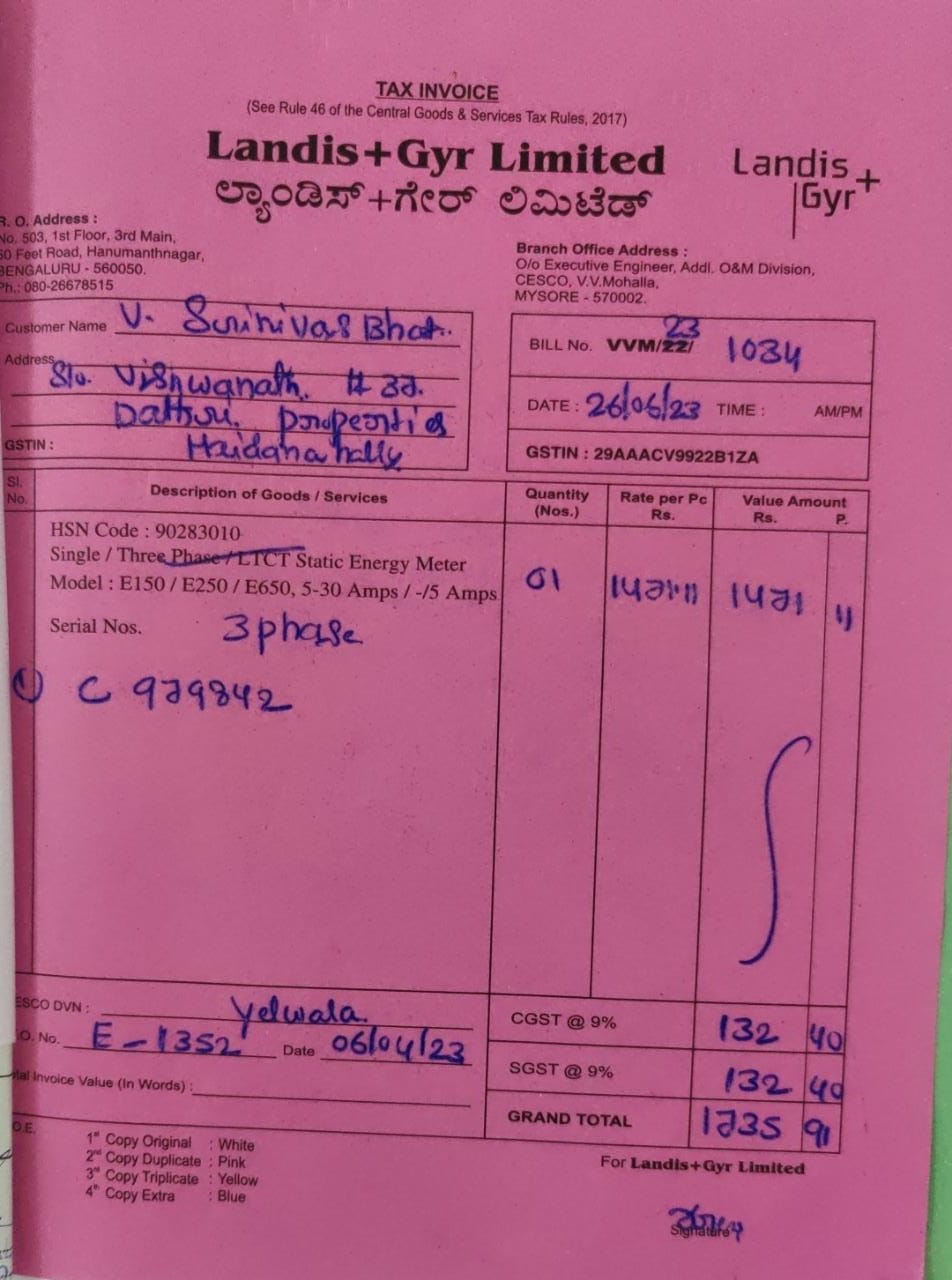 TAX INVOICE
(See Rule 46 of the Central Goods & Services Tax Rules, 2017)
Landis+Gyr Limited
Landis+
Gyr
ಲ್ಯಾಂಡಿಸ್+ಗೇರ್ ಲಿಮಿಟೆಡ್
R. O. Address :
No. 503, 1st Floor, 3rd Main,
60 Feet Road, Hanumanthnagar,
BENGALURU - 560050.
Ph.: 080-26678515
Branch Office Address :
O/o Executive Engineer, Addl. O&M Division,
CESCO, V.V.Mohalla,
MYSORE - 570002.
Customer Name V. Srinivas Bhat.
Address S/o. Vishwanath. # 37.
Datturi. Properties
GSTIN : Haidanahally
BILL No. VVM/22/ 23 1034
DATE : 26/06/23 TIME : AM/PM
GSTIN : 29AAACV9922B1ZA
Sl. No. Description of Goods / Services Quantity (Nos.) Rate per Pc Rs. Value Amount Rs. P.
HSN Code : 90283010
Single / Three Phase / LTCT Static Energy Meter
Model : E150 / E250 / E650, 5-30 Amps / -/5 Amps 01 1471.11 1471 11
Serial Nos. 3 phase
1) C 979842
ESCO DVN : Yelwala.
O. No. E-1352 Date 06/04/23
tal Invoice Value (In Words) :
CGST @ 9% 132 40
SGST @ 9% 132 40
GRAND TOTAL 1735 91
O.E.
1st Copy Original : White
2nd Copy Duplicate : Pink
3rd Copy Triplicate : Yellow
4th Copy Extra : Blue
For Landis+Gyr Limited
Signature